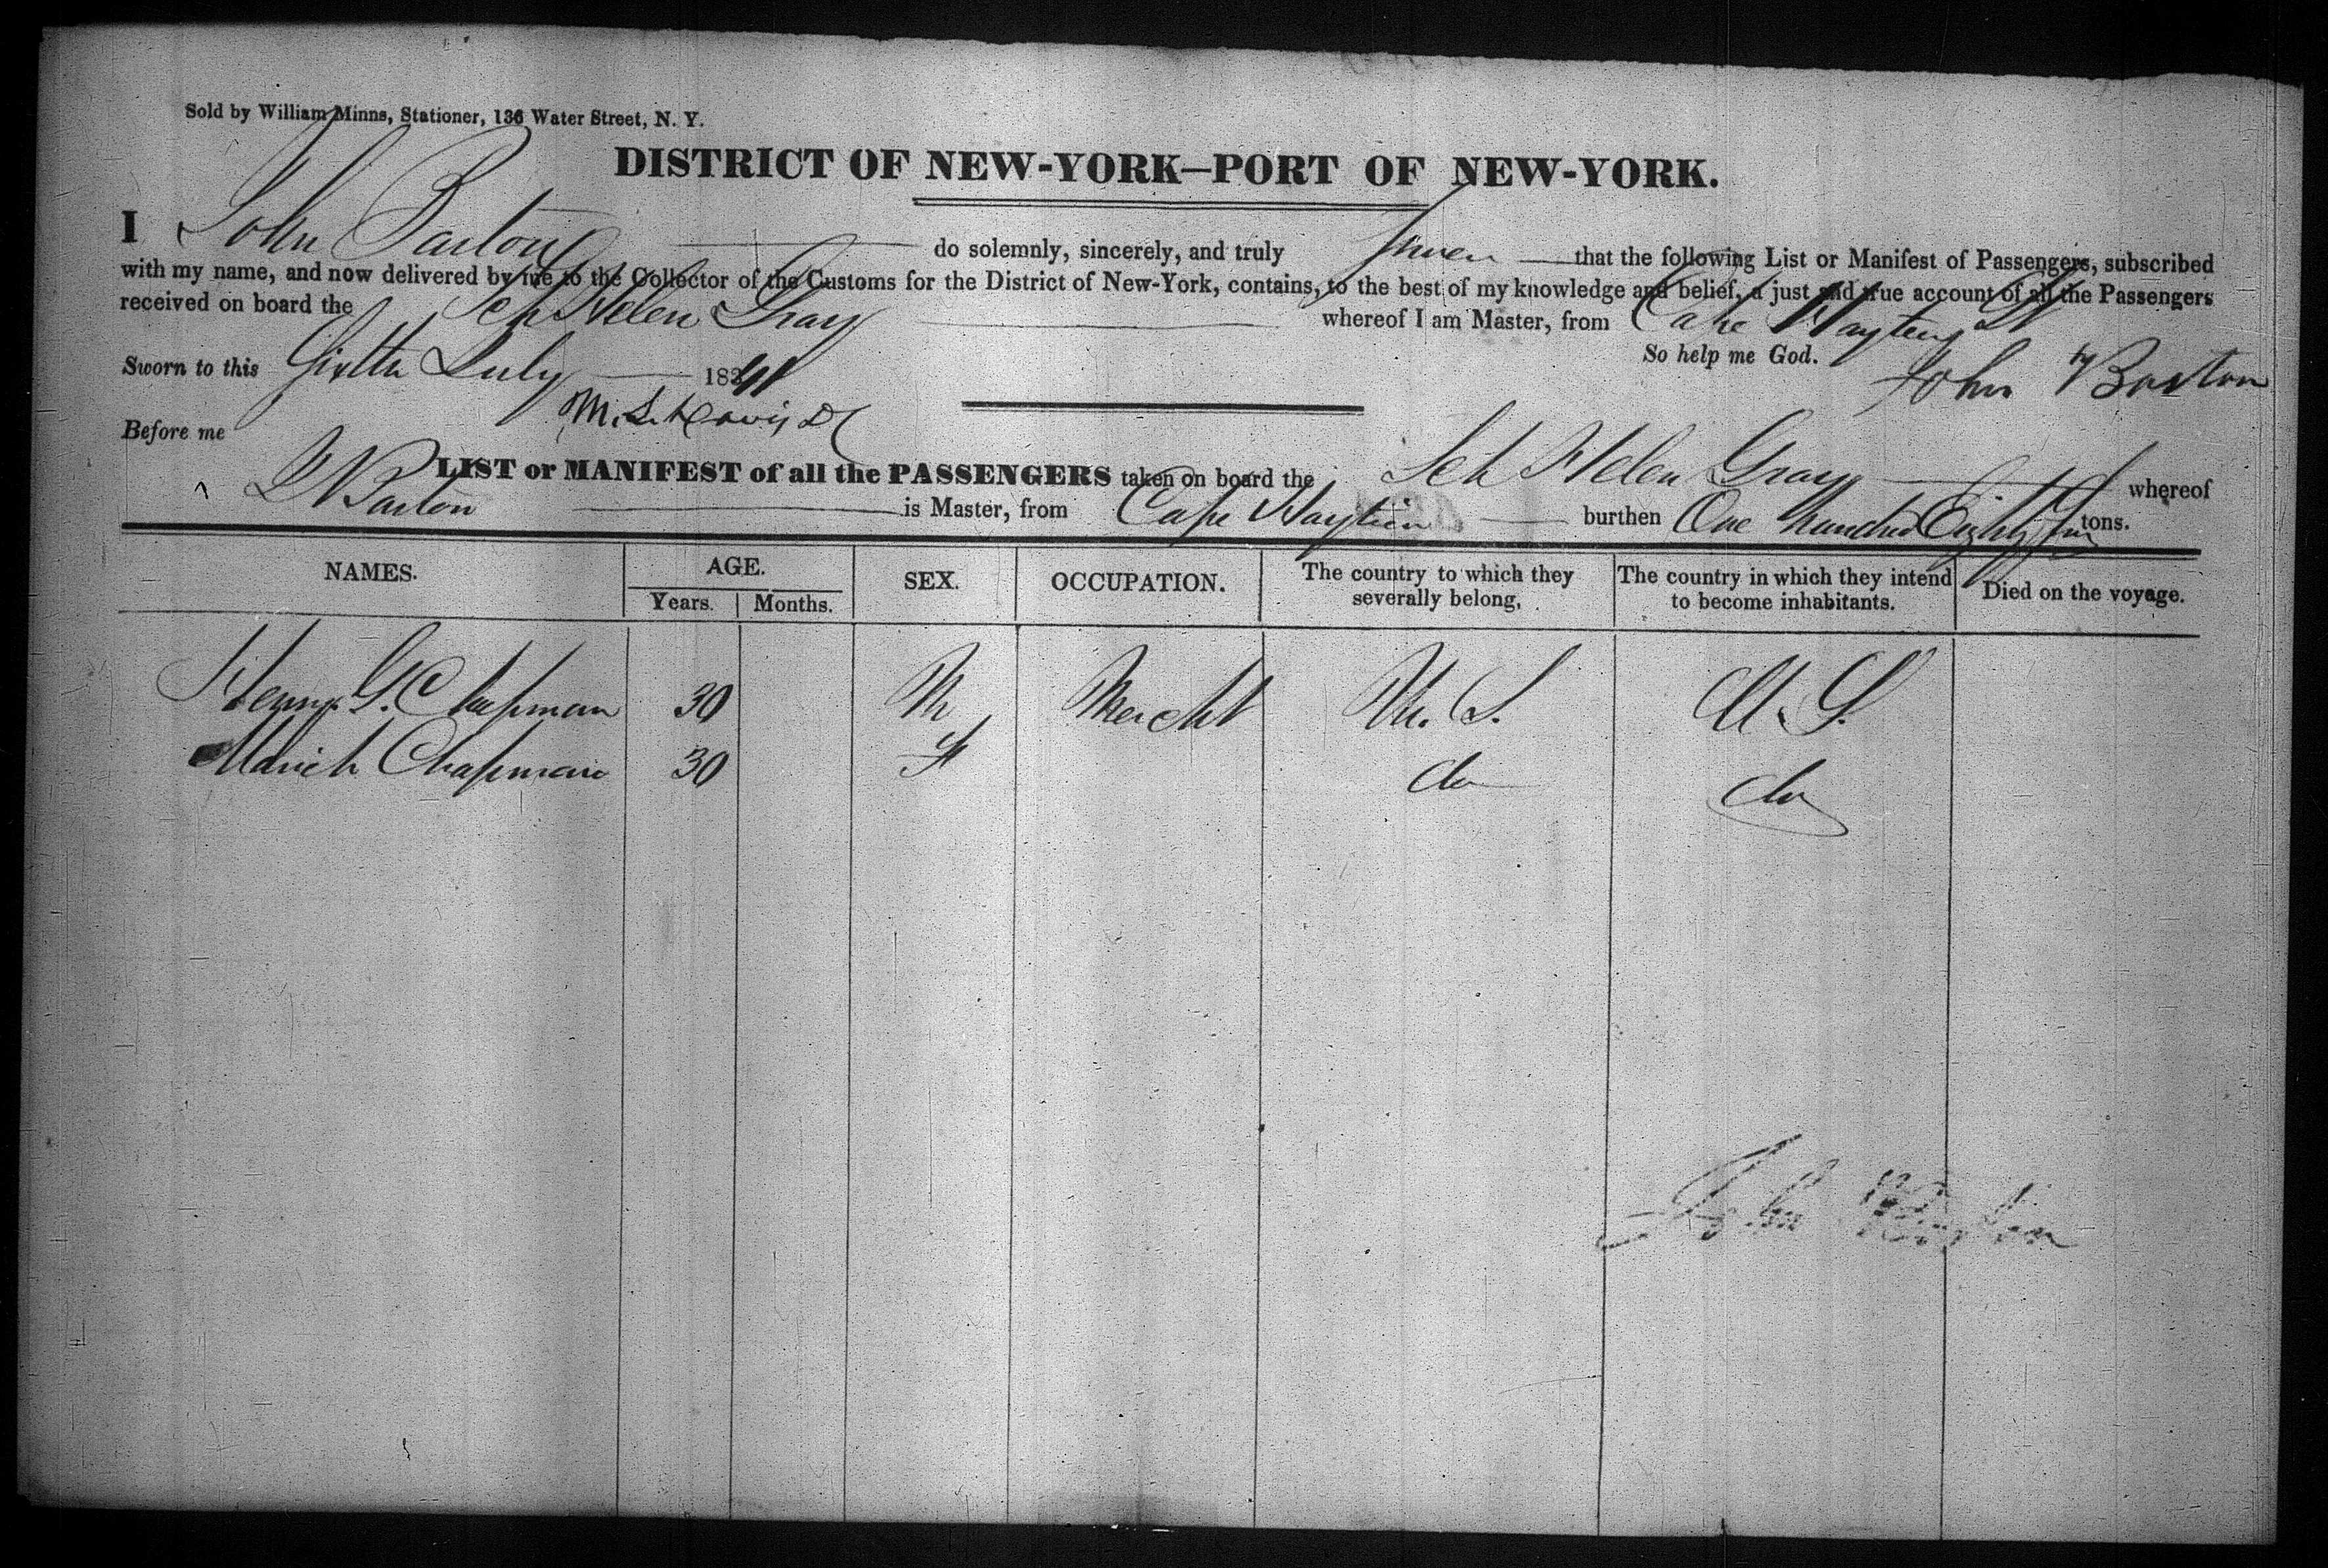 Sold by William Minns, Stationer, 136 Water Street, N. Y.
DISTRICT OF NEW-YORK—PORT OF NEW-YORK.
I John Barton do solemnly, sincerely, and truly Swear that the following List or Manifest of Passengers, subscribed
with my name, and now delivered by me to the Collector of the Customs for the District of New-York, contains, to the best of my knowledge and belief, a just and true account of all the Passengers
received on board the Sch Helen Gray whereof I am Master, from Cape Haytien
So help me God.
Sworn to this Sixth July 1841
John Barton
M. L. Davis
Before me
LIST or MANIFEST of all the PASSENGERS taken on board the Sch Helen Gray whereof
Barton is Master, from Cape Haytien burthen One hundred Eighty tons.
NAMES. AGE. SEX. OCCUPATION. The country to which they severally belong, The country in which they intend to become inhabitants. Died on the voyage.
Years. Months.
Henry G. Chapman 30 M Mercht U. S. U. S.
Chapman 30 F do do
John Barton